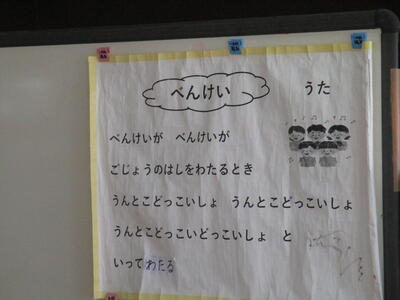 べんけい　うた
べんけいが　べんけいが
ごじょうのはしをわたるとき
うんとこどっこいしょ　うんとこどっこいしょ
うんとこどっこいどっこいしょ　と
いってわたる